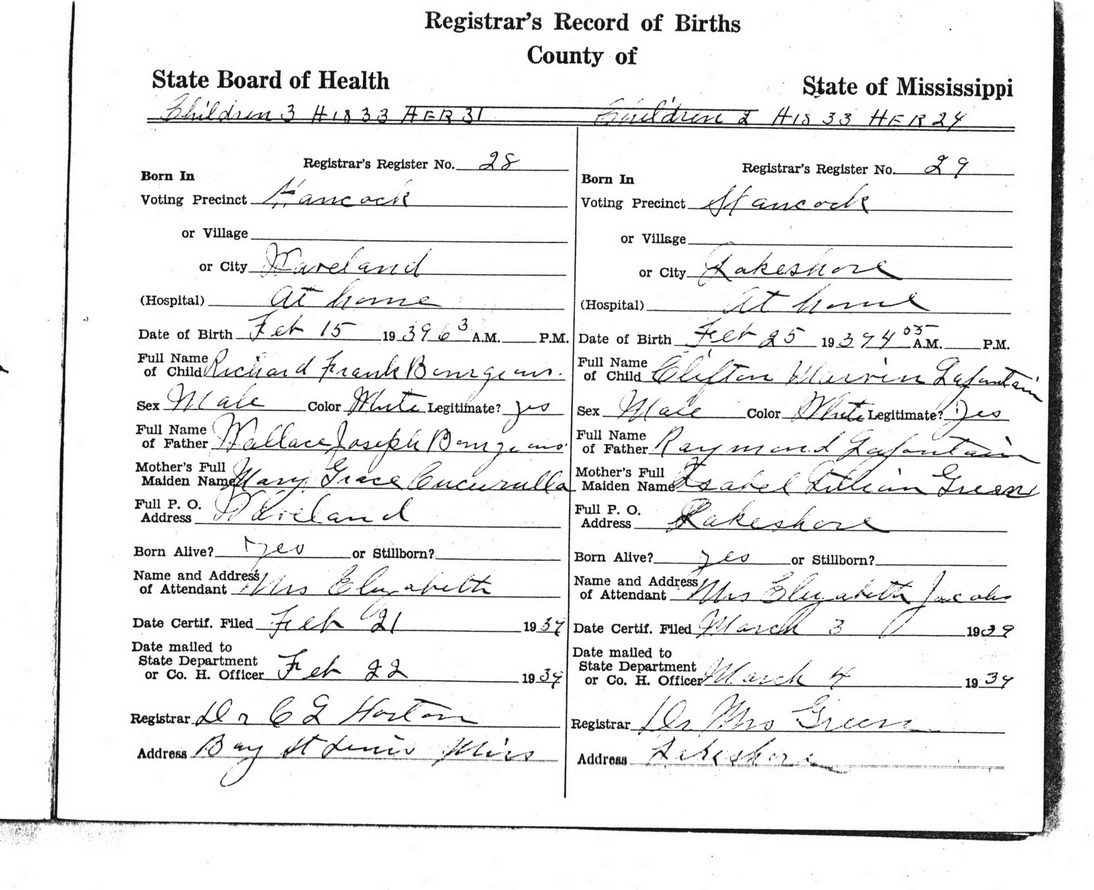 Registrar's Record of Births
County of
State Board of Health
State of Mississippi
Children 3 HIS 33 HER 31
Registrar's Register No. 28
Born In
Voting Precinct Hancock
or Village
or City Waveland
(Hospital) At home
Date of Birth Feb 15 1939 6 3 A.M. P.M.
Full Name
of Child Richard Frank Bourgeois.
Sex Male Color White Legitimate? yes
Full Name
of Father Wallace Joseph Bourgeois
Mother's Full
Maiden Name Mary Grace Cucurulla
Full P. O.
Address Waveland
Born Alive? yes or Stillborn?
Name and Address
of Attendant Mrs Elizabeth
Date Certif. Filed Feb 21 1939
Date mailed to
State Department
or Co. H. Officer Feb 22 1939
Registrar Dr C L Horton
Address Bay St Louis Miss
Children 2 HIS 33 HER 24
Registrar's Register No. 29
Born In
Voting Precinct Hancock
or Village
or City Lakeshore
(Hospital) At home
Date of Birth Feb 25 1939 4 05 A.M. P.M.
Full Name
of Child Clifton Marvin Lafontain
Sex Male Color White Legitimate? Yes
Full Name
of Father Raymond Lafontain
Mother's Full
Maiden Name Isabel Lillian Green
Full P. O.
Address Lakeshore
Born Alive? yes or Stillborn?
Name and Address
of Attendant Mrs Elizabeth Jacobs
Date Certif. Filed March 3 1939
Date mailed to
State Department
or Co. H. Officer March 4 1939
Registrar Dr Mrs Green
Address Lakeshore